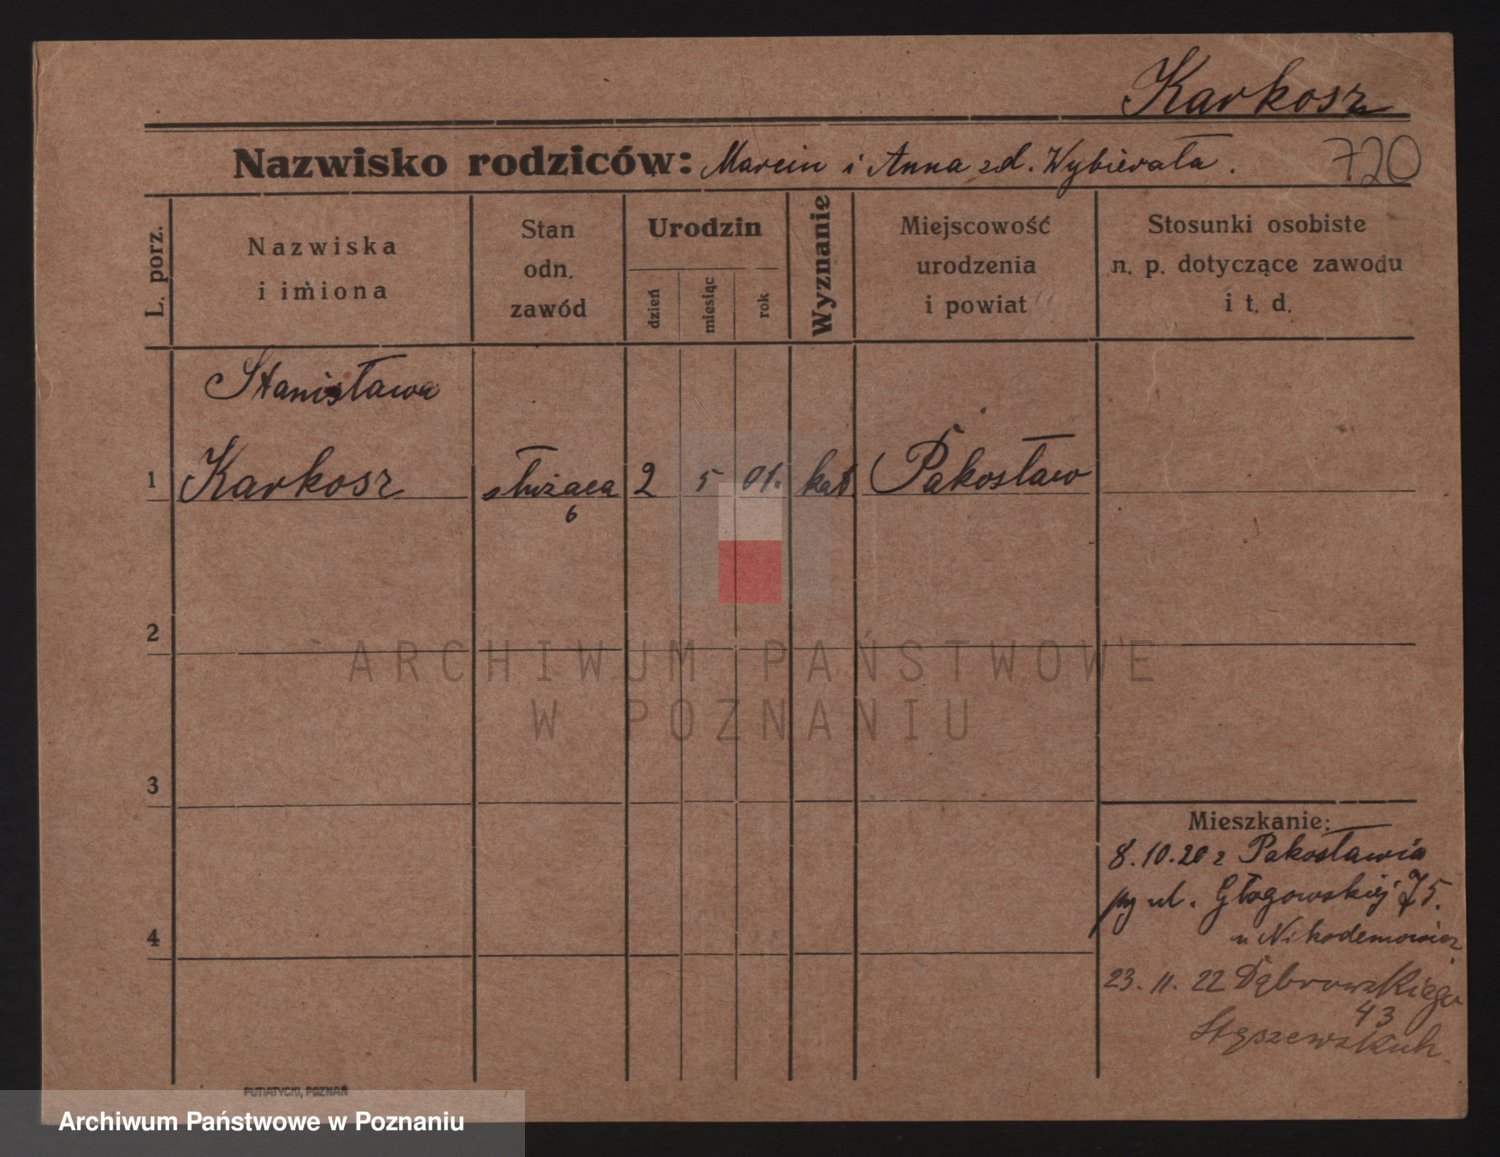 Karkosz
Nazwisko rodziców: Marcin i Anna zd. Wybierała.
720
L. porz.
Nazwiska
i imiona
Stan
odn.
zawód
Urodzin
dzień
miesiąc
rok
Wyznanie
Miejscowość
urodzenia
i powiat
Stosunki osobiste
n. p. dotyczące zawodu
i t. d.
Stanisława
1 Karkosz służąca 2 5 01. kat. Pakosław
6
2
3
4
Mieszkanie:
8.10.20 z Pakosławia
ul. Głogowskiej 75.
u Nikodemowicz
23.11.22 Dąbrowskiego
43
PUTIATYCKI, POZNAŃ
ARCHIWUM PAŃSTWOWE
W POZNANIU
Archiwum Państwowe w Poznaniu